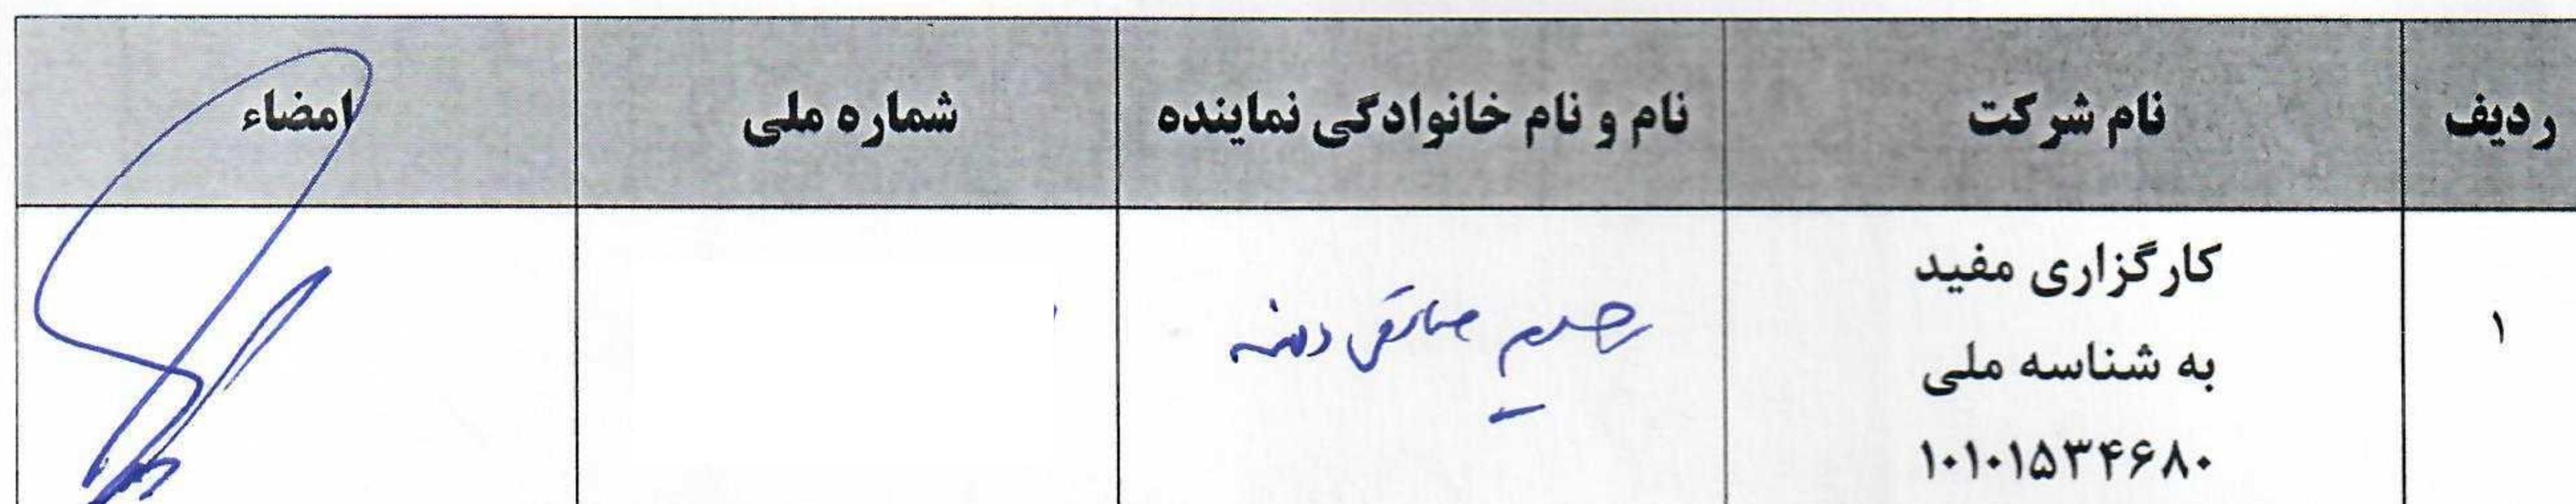 ردیف
نام شرکت
نام و نام خانوادگی نماینده
شماره ملی
امضاء
۱
کارگزاری مفید
به شناسه ملی
۱۰۱۰۱۵۳۴۶۸۰
صادقی